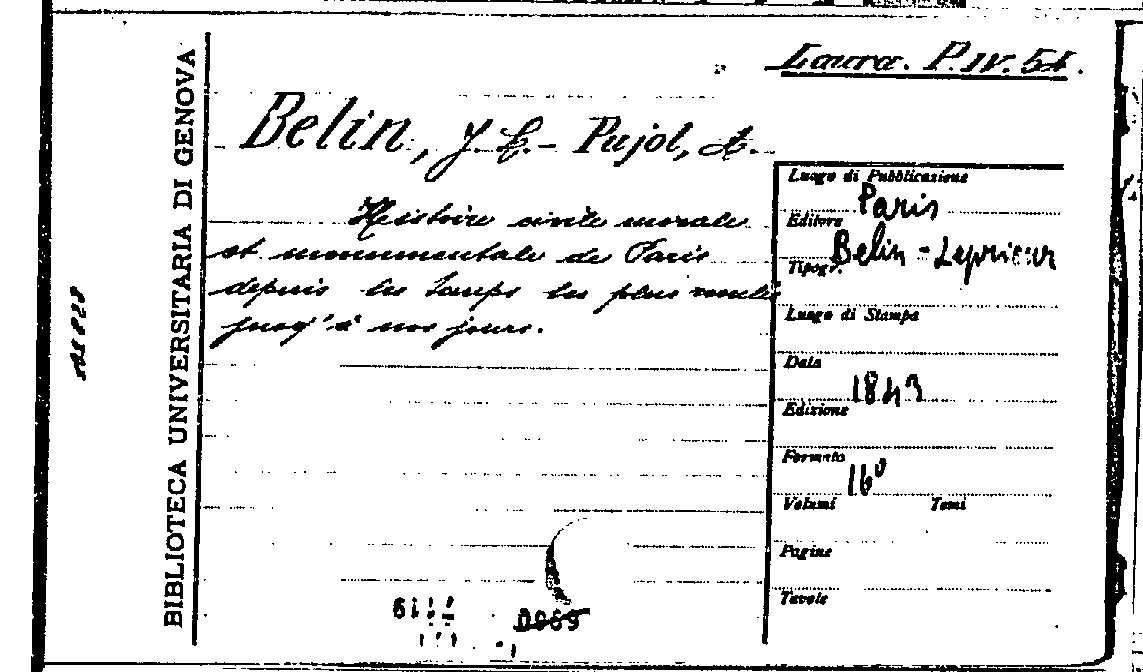 Laura. P.IV.51.
BIBLIOTECA UNIVERSITARIA DI GENOVA
Belin, J. L. - Pujol, A.
Histoire civile morale
et monumentale de Paris
depuis les temps les plus reculés
jusq'à nos jours.
Luogo di Pubblicazione
Paris
Editore
Belin - Leprieur
Tipogr.
Luogo di Stampa
Data
1843
Edizione
Formato
16°
Volumi Tomi
Pagine
Tavole
0969